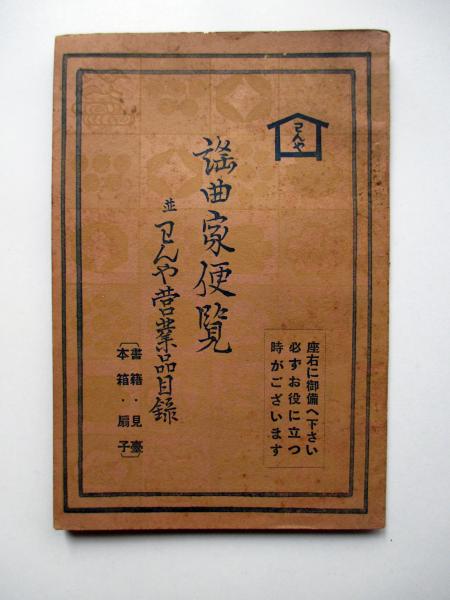 わんや
謡曲家便覧
並わんや営業品目録
書籍・見臺
本箱・扇子
座右に御備へ下さい
必ずお役に立つ
時がございます